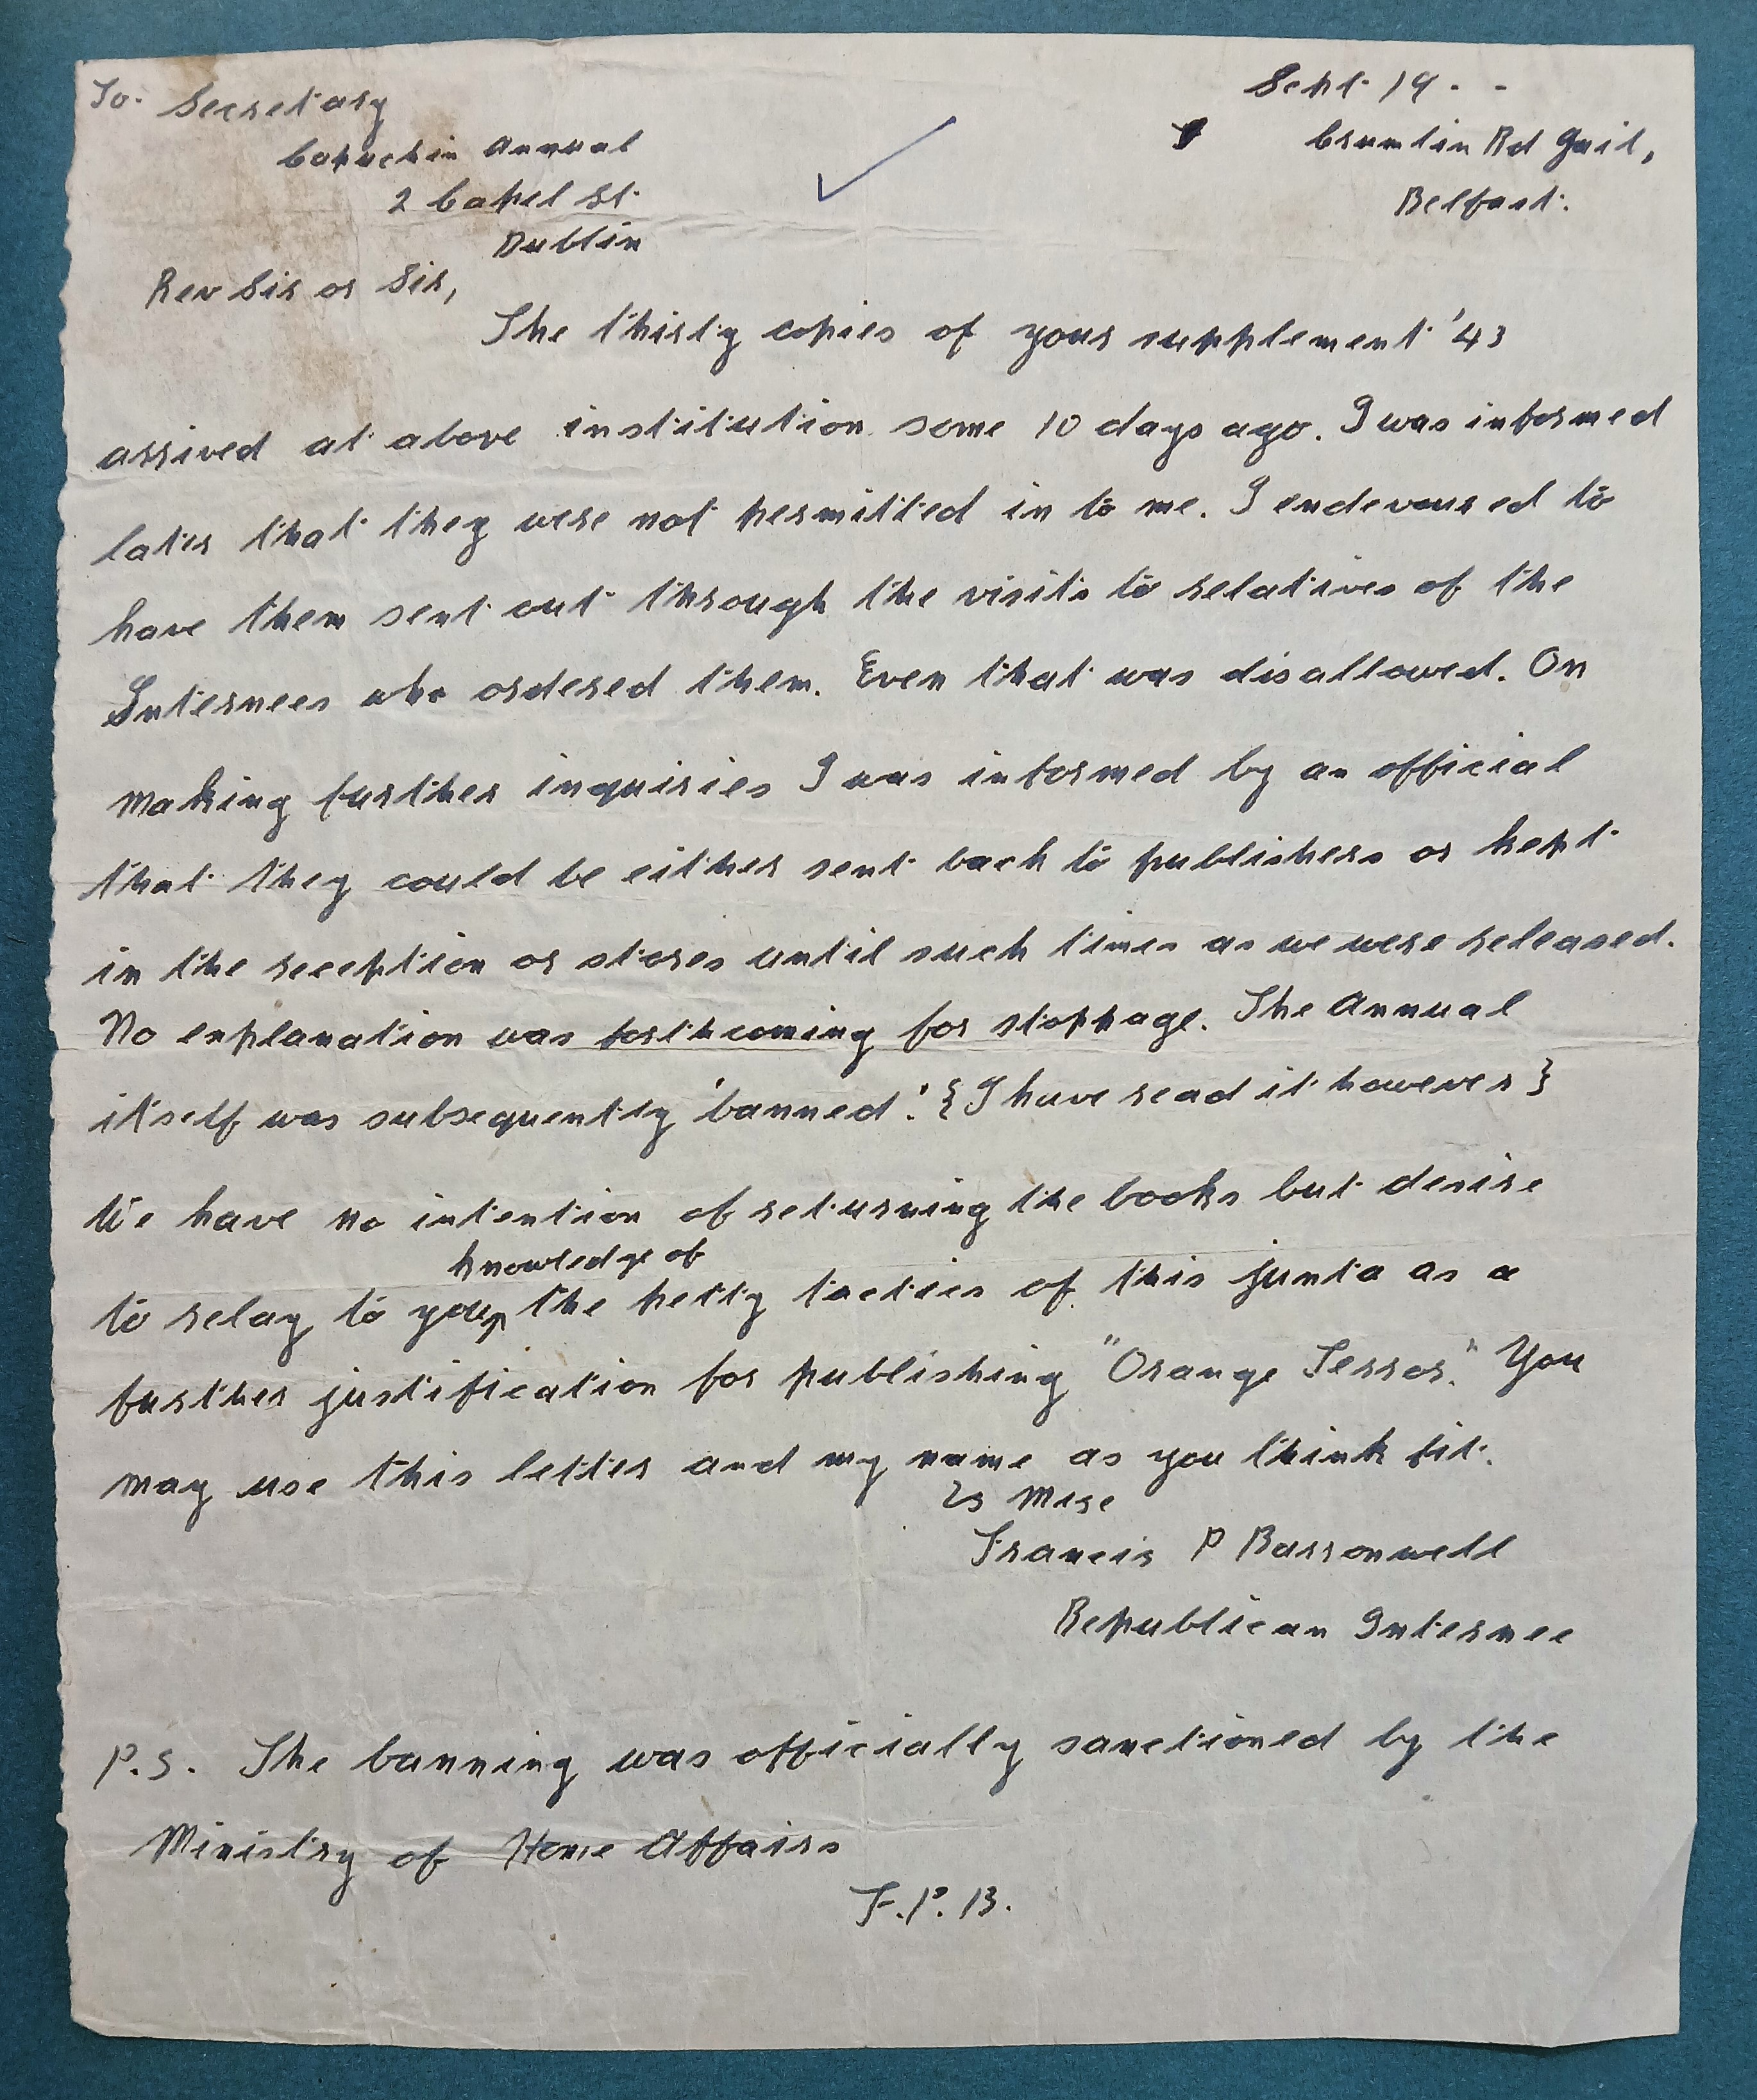 To. Secretary
Capuchin Annual
2 Capel St.
Dublin
Sept. 19 - -
Crumlin Rd Gail,
Belfast.
Rev Sir or Sir,
The thirty copies of your supplement '43
arrived at above institution some 10 days ago. I was informed
later that they were not permitted in to me. I endevoured to
have them sent out through the visits to relatives of the
Internees who ordered them. Even that was disallowed. On
making further inquiries I was informed by an official
that they could be either sent back to publishers or kept
in the reception or stores until such times as we were released.
No explanation was forthcoming for stoppage. The Annual
itself was subsequently 'banned'. {I have read it however}
We have no intention of returning the books but desire
knowledge of
to relay to you, the petty tactics of this junta as a
further justification for publishing "Orange Terror." You
may use this letter and my name as you think fit.
Is Mise
Francis P
Republican Internee
P.S. The banning was officially sanctioned by the
Ministry of Home Affairs
F.P.B.